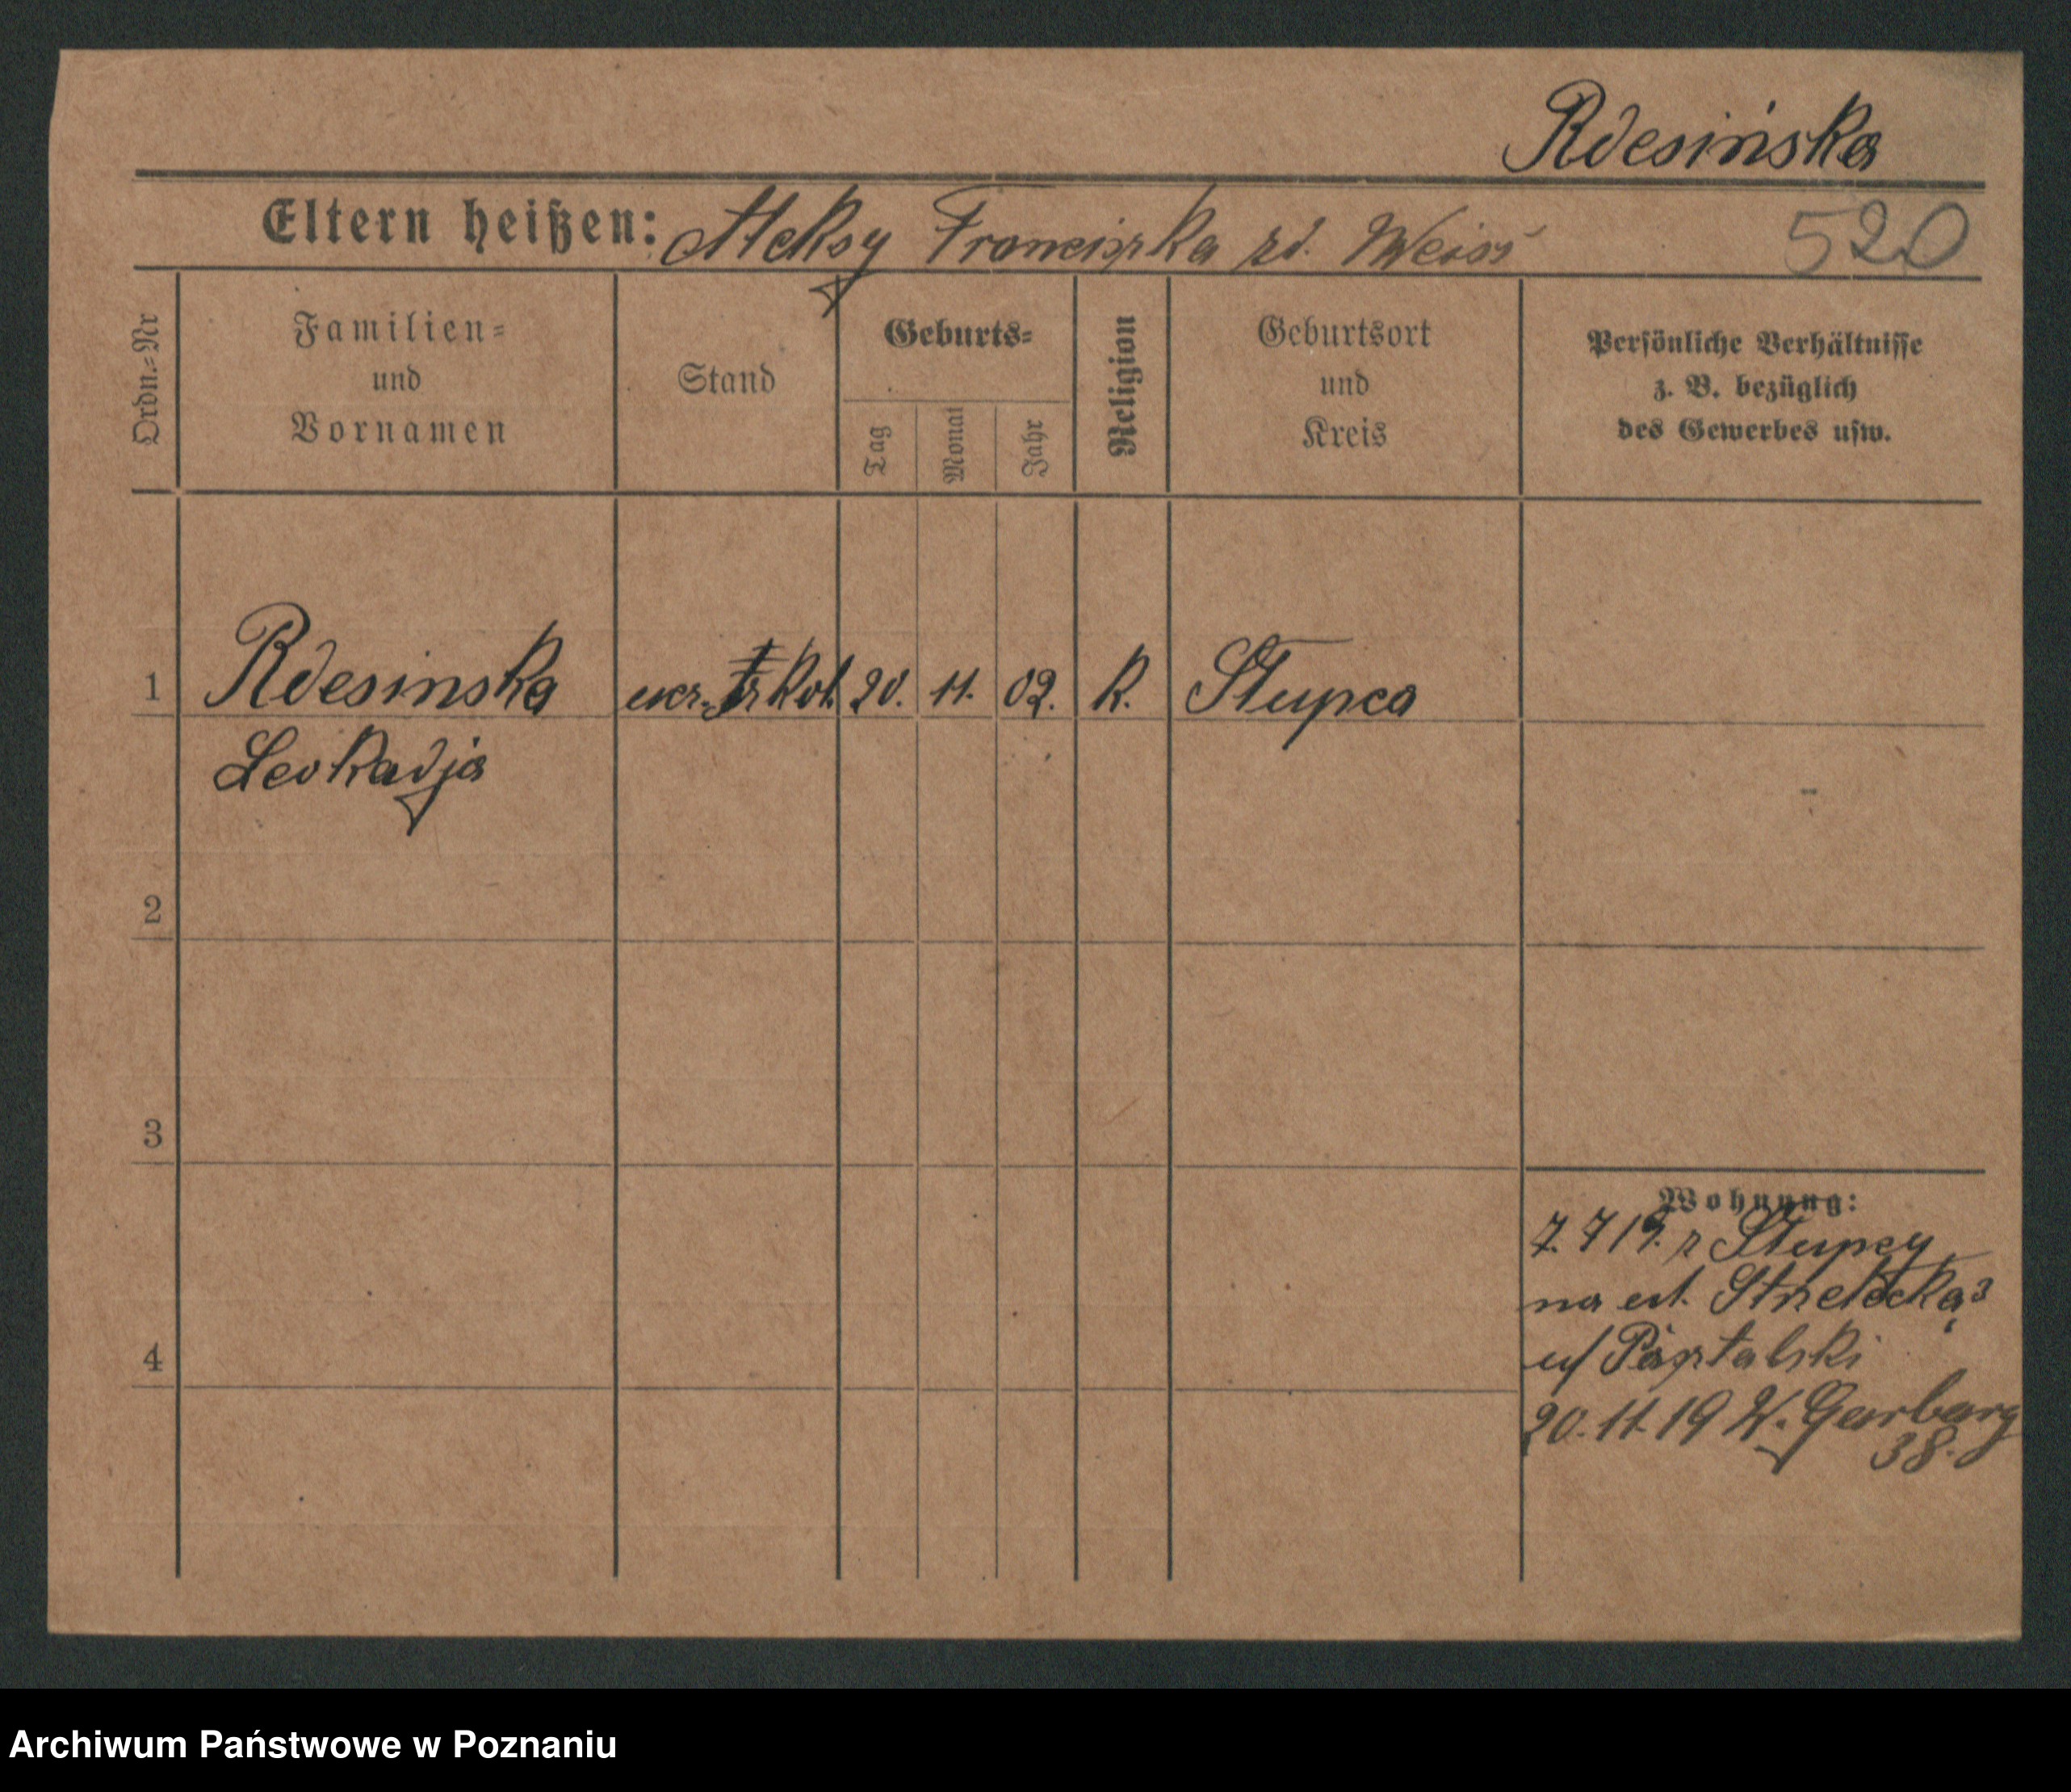 Rdesińska
Eltern heißen: Aleksy Franciszka zd. Weiss
520
Ordn.-Nr
Familien-
und
Vornamen
Stand
Geburts-
Tag
Monat
Jahr
Religion
Geburtsort
und
Kreis
Persönliche Verhältnisse
z. B. bezüglich
des Gewerbes usw.
1 Rdesinska 20. 11. 02. K. Słupca
Leokadja
2
3
4
Wohnung:
7. 7 19. z Słupcy
na ul. Strzelecką 3
u/
20. 11. 19 W. Garbary
38.
Archiwum Państwowe w Poznaniu